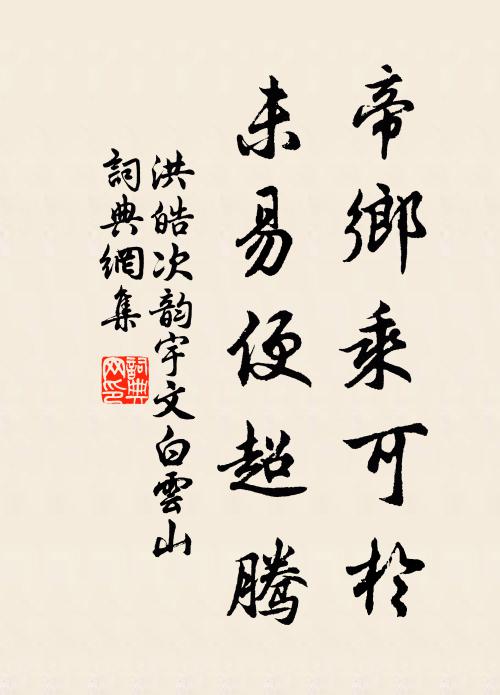 帝鄉乘可於
未易便超騰
洪皓次韵宇文白雲山
詞典網集
詞典網印